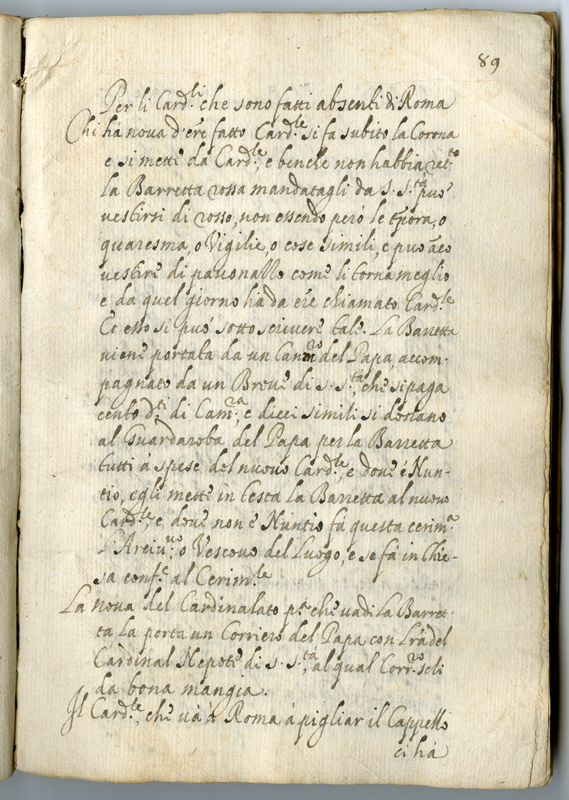 89
Per li Card.li che sono fatti absenti di Roma
Chi ha nova d'ere fatto Card.le si fa subito la Corona
e si mette da Card.le, e benche non habbia
la Barretta rossa mandatagli da S. S.tà può
vestirsi di rosso, non essendo però le tpora, o
quaresma, o Vigilie, o cose simili, e può aco
vestire di pauonallo come li torna meglio
e da quel giorno ha da ere chiamato Card.le
Et esso si può sotto scrivere tale. La Barretta
viene portata da un Cam.re del Papa, accom-
pagnato da un Breve di S. S.tà, che si paga
cento d.ti di Cam.ra, e dieci simili si donano
al Guardaroba del Papa per la Barretta
tutti à spese del nuovo Card.le, e dove é Nun-
tio, egli mette in testa la Barretta al nuovo
Card.le, e dove non é Nuntio fà questa cerim.a
l'Arciv.vo o Vescovo del Luogo, e se fà in Chie-
sa conf.e al Cerim.le
La nova del Cardinalato p.a che vadi la Barret-
ta la porta un Corriero del Papa con Lrà del
Cardinal Nepote di S. S.tà, al qual Corr.ro seli
da bona mangia.
Il Card.le che và à Roma à pigliar il Cappello
ci hà